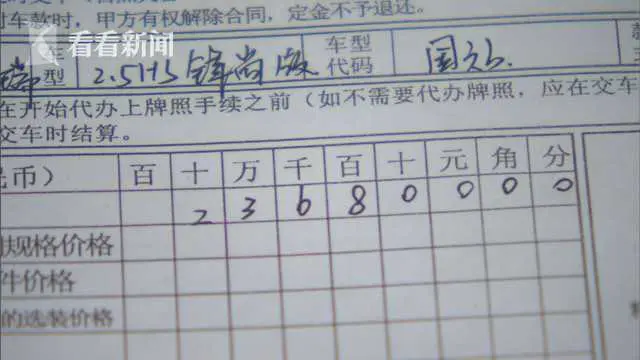 付车款时，甲方有权解除合同，定金不予退还。
看看新闻
车型 2.5HS 锋尚版 车型代码 国六
在开始代办上牌照手续之前（如不需要代办牌照，应在交车
交车时结算。
民币） 百 十 万 千 百 十 元 角 分
2 3 6 8 0 0 0 0
规格价格
件价格
的选装价格